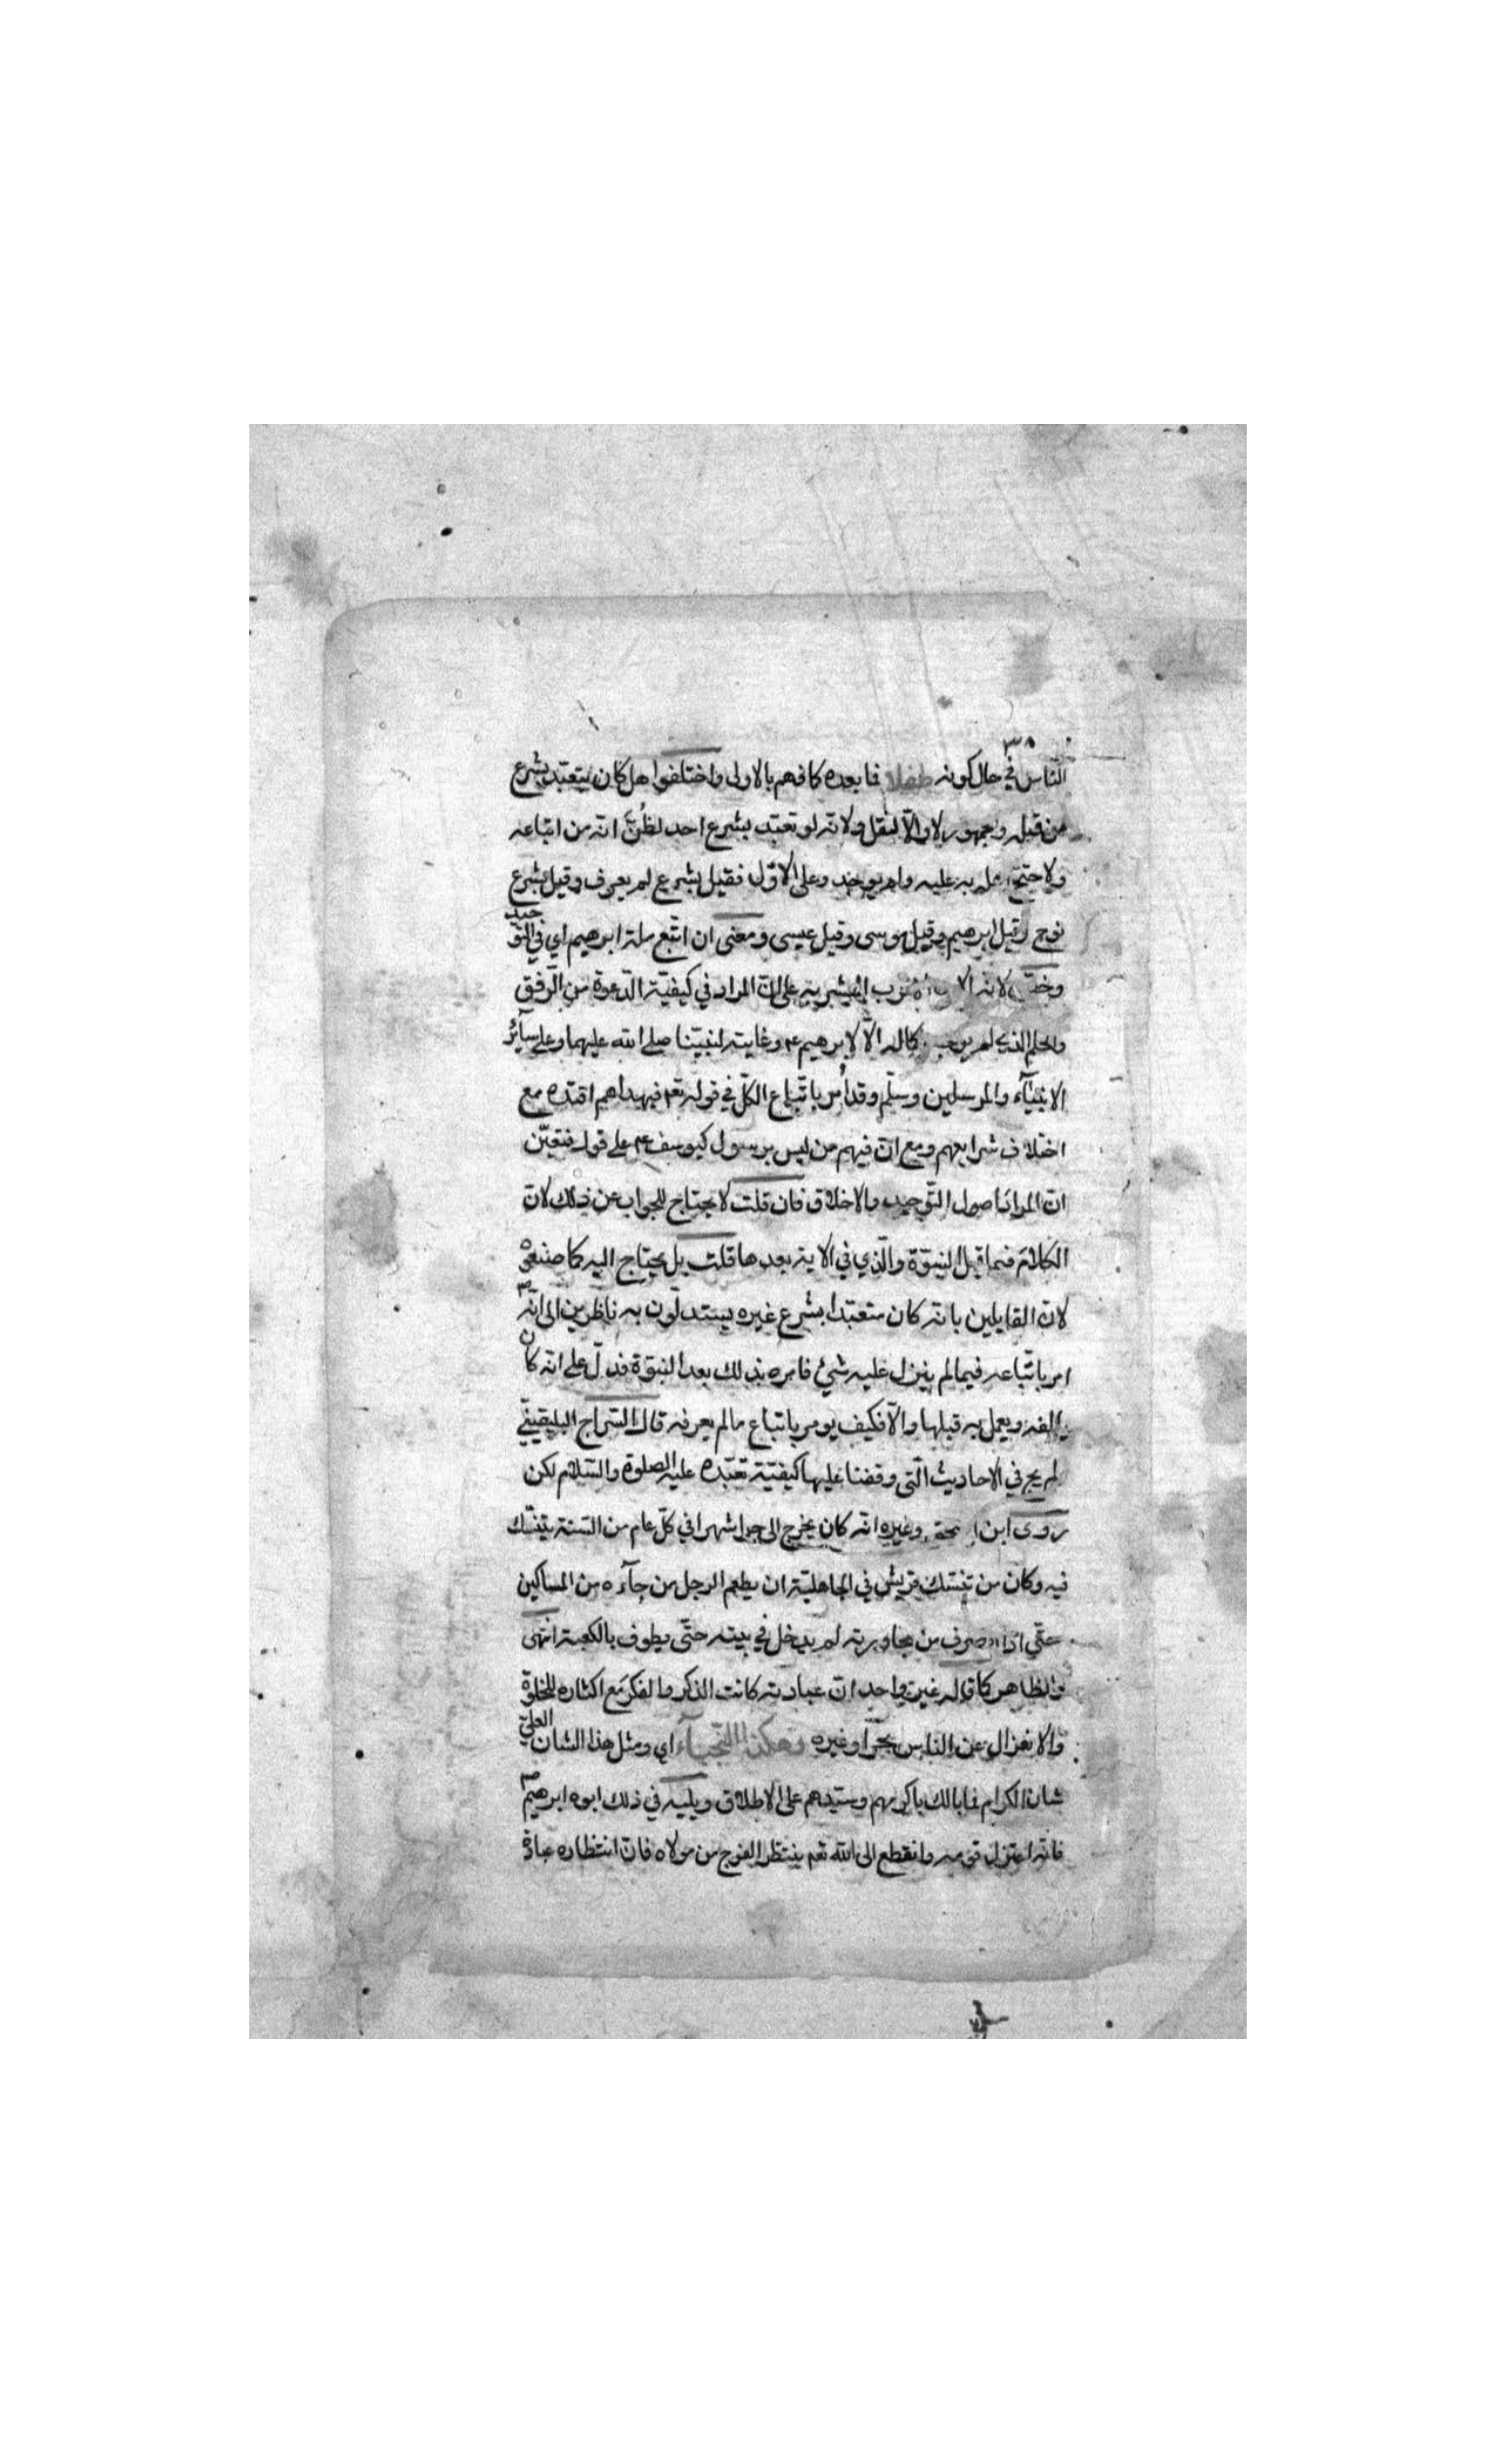 ٣٨
النّاس في حال كونه طفلا فما بعده كما فهم بالاولى واختلفوا هل كان يتعبّد بشرع
من قبله وجمهور لا والّا لنقل ولانّه لو تعبّد بشرع احد لظُنّ انّه من اتباعه
ولاحتجّ به عليه ولم يوجد وعلى الاوّل فقيل بشرع لم يعرف وقيل بشرع
نوح وقيل ابرهيم وقيل موسى وقيل عيسى ومعنى ان اتّبع ملة ابرهيم اي في التوحيد
لانه على انّ المراد في كيفيّة الدّعوة من الرّفق
والحلم الذي لم يوجب كماله الّا لابرهيم ءم وغايته لنبيّنا صلى الله عليهما وعلى سآئر
الانبيآء والمرسلين وسلّم وقد أُمر باتّباع الكلّ في قوله تعم فبهداهم اقتده مع
اختلاف شرايعهم ومع انّ فيهم من ليس برسول كيوسف ءم على قول فتعيّن
انّ المراد اصول التّوحيد والاخلاق فان قلت لا يحتاج للجواب عن ذلك لانّ
الكلام فيما قبل النبوّة والّذي في الاية بعدها قلت بل يحتاج اليه كما صنعوه
لانّ القايلين بانّه كان متعبّدا بشرع غيره يستدلّون به ناظرين الى انّه
امر باتّباعه فيما لم ينزل عليه شئ فامره بذلك بعد النبوّة فدلّ على انّه كان
يالفه ويعمل به قبلها والّا فكيف يومر باتباع ما لم يعرفه قال السّراج البلقينيّ
لم يجئ في الاحاديث الّتى وقفنا عليها كيفيّة تعبّده عليه الصلوة والسّلام لكن
روى ابن اسحق وغيره انّه كان يخرج الى حرا شهرا في كلّ عام من السّنة يتنسّك
فيه وكان من تنسّك قريش في الجاهليّة ان يطعم الرجل من جآءه من المساكين
حتّى اذا انصرف من مجاورته لم يدخل في بيته حتّى يطوف بالكعبة انتهى
والظاهر كما قاله غير واحد انّ عبادته كانت الذكر والفكر مع اكثاره للخلوة
والانعزال عن الناس بحرّا وغيره وهكذا النّجبآء اي ومثل هذا الشان العليّ
شان الكرام فما بالك باكرمهم وسيّدهم على الاطلاق ويليه في ذلك ابوه ابرهيم
فانّه اعتزل قومه وانقطع الى الله تعم ينتظر الفرج من مولاه فانّ انتظاره عبادة